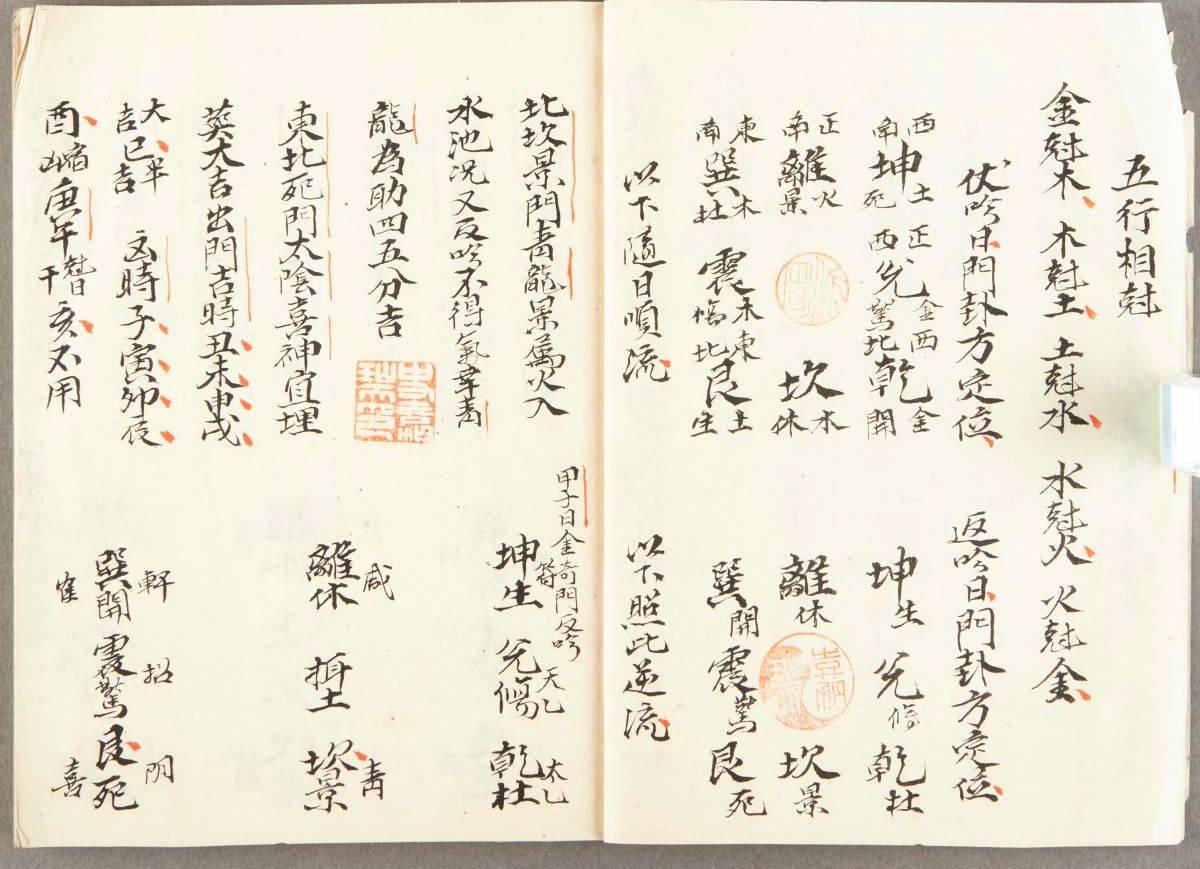 五行相尅
金尅木 木尅土 土尅水 水尅火 火尅金
伏吟日門卦方定位
西南坤土死 正西兌金驚 西北乾金開
正南離火景 坎水休
東南巽木杜 震木東傷 東北艮土生
以下隨日順流
返吟日門卦方定位
坤生 兌傷 乾杜
離休 坎景
巽開 震驚 艮死
以下照此逆流
北坎景門青龍景為火入
水池況又反吟不得氣幸青
龍為助四五分吉
東北死門太陰喜神宜理
葬大吉出門吉時丑未申戌
大吉巳半吉 凶時子寅卯辰
酉 庚午 亥不用
甲子日金奇門反吟
坤生 兌傷天乙 乾杜太乙
離休咸 坎景青
巽開軒 震驚招 艮死陰
喜